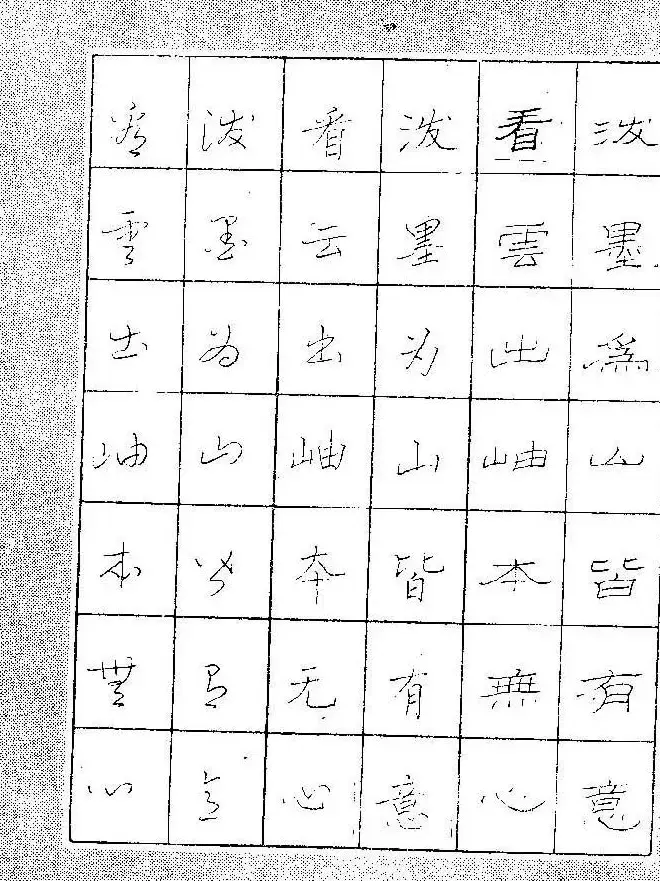 泼墨為山皆有意
看雲出岫本無心
泼墨为山皆有意
看云出岫本无心
泼墨为山皆有意
看雲出岫本無心